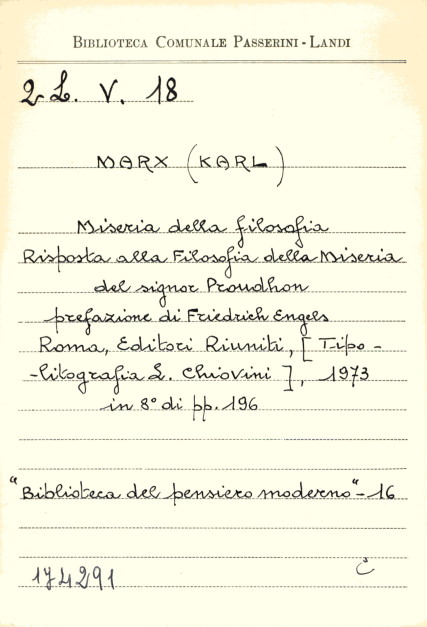 BIBLIOTECA COMUNALE PASSERINI - LANDI
2 L. V. 18
MARX (KARL)
Miseria della filosofia
Risposta alla Filosofia della Miseria
del signor Proudhon
prefazione di Friedrich Engels
Roma, Editori Riuniti, [Tipo-
-litografia L. Chiovini], 1973
in 8° di pp. 196
"Biblioteca del pensiero moderno" - 16
174291